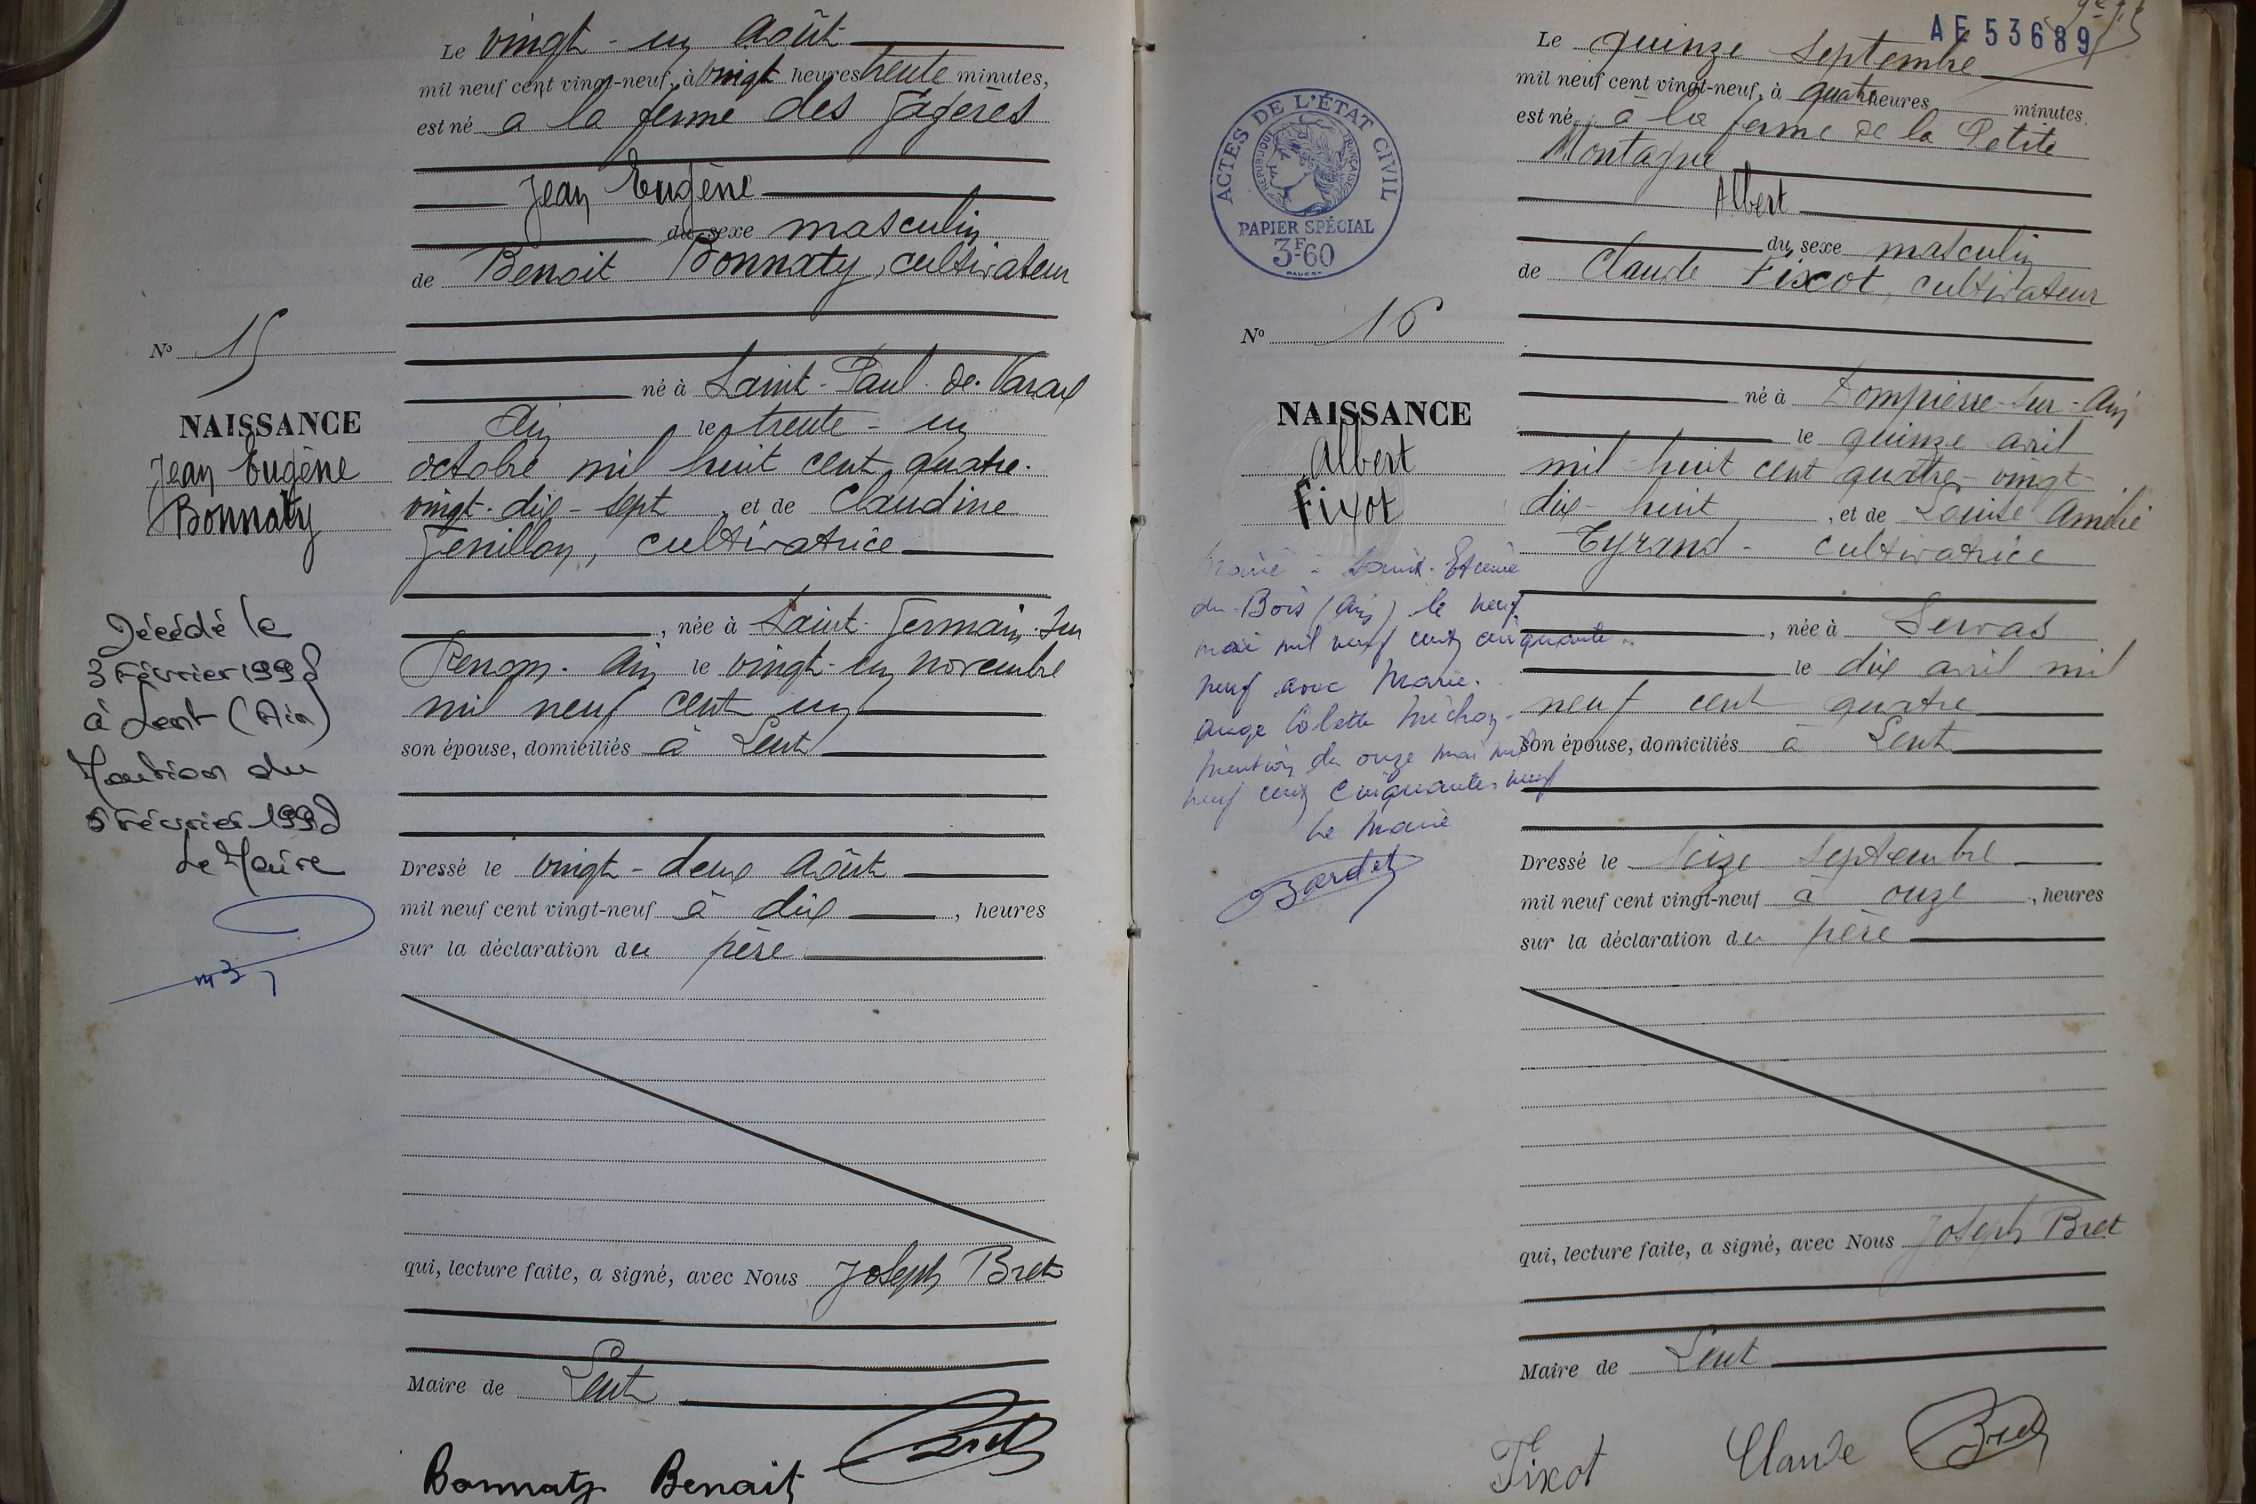 Le vingt-un Août
mil neuf cent vingt-neuf, à vingt heures trente minutes,
est né à la ferme des
Jean Eugène
du sexe masculin
de Benoit Bonnaty, cultivateur
né à Saint-Paul-de-Varax
Ain le trente-un
octobre mil huit cent quatre-
vingt-dix-sept, et de Claudine
Jenillon, cultivatrice
, née à Saint-Germain-sur
Renom-Ain le vingt-un novembre
mil neuf cent un
son épouse, domiciliés à Lent
Dressé le vingt-deux Août
mil neuf cent vingt-neuf à dix, heures
sur la déclaration du père
qui, lecture faite, a signé, avec Nous Joseph Bret
Maire de Lent
Bonnaty Benoit Bret
No 15
NAISSANCE
Jean Eugène
Bonnaty
Décédé le
3 Février 1998
à Lent (Ain)
Mention du
5 Février 1998
Le Maire
AE 53689
Le quinze Septembre
mil neuf cent vingt-neuf, à quatre heures minutes.
est né à la ferme de la Petite
Montagne
Albert
du sexe masculin
de Claude Fixot, cultivateur
né à Dompierre-sur-Ain
le quinze avril
mil huit cent quatre-vingt-
dix-huit, et de Louise Amélie
Tyrand - cultivatrice
, née à Servas
le dix avril mil
neuf cent quatre
son épouse, domiciliés à Lent
Dressé le seize Septembre
mil neuf cent vingt-neuf à onze, heures
sur la déclaration du père
qui, lecture faite, a signé, avec Nous Joseph Bret
Maire de Lent
Fixot Claude Bret
ACTES DE L'ÉTAT CIVIL
RÉPUBLIQUE FRANÇAISE
PAPIER SPÉCIAL
3F60
No 16
NAISSANCE
Albert
Fixot
Marié à Saint-Etienne
du-Bois (Ain) le neuf
mai mil neuf cent cinquante-
neuf avec Marie-
Ange Colette Michon-
Mention du onze mai mil
neuf cent cinquante-neuf
Le Maire
Bardet